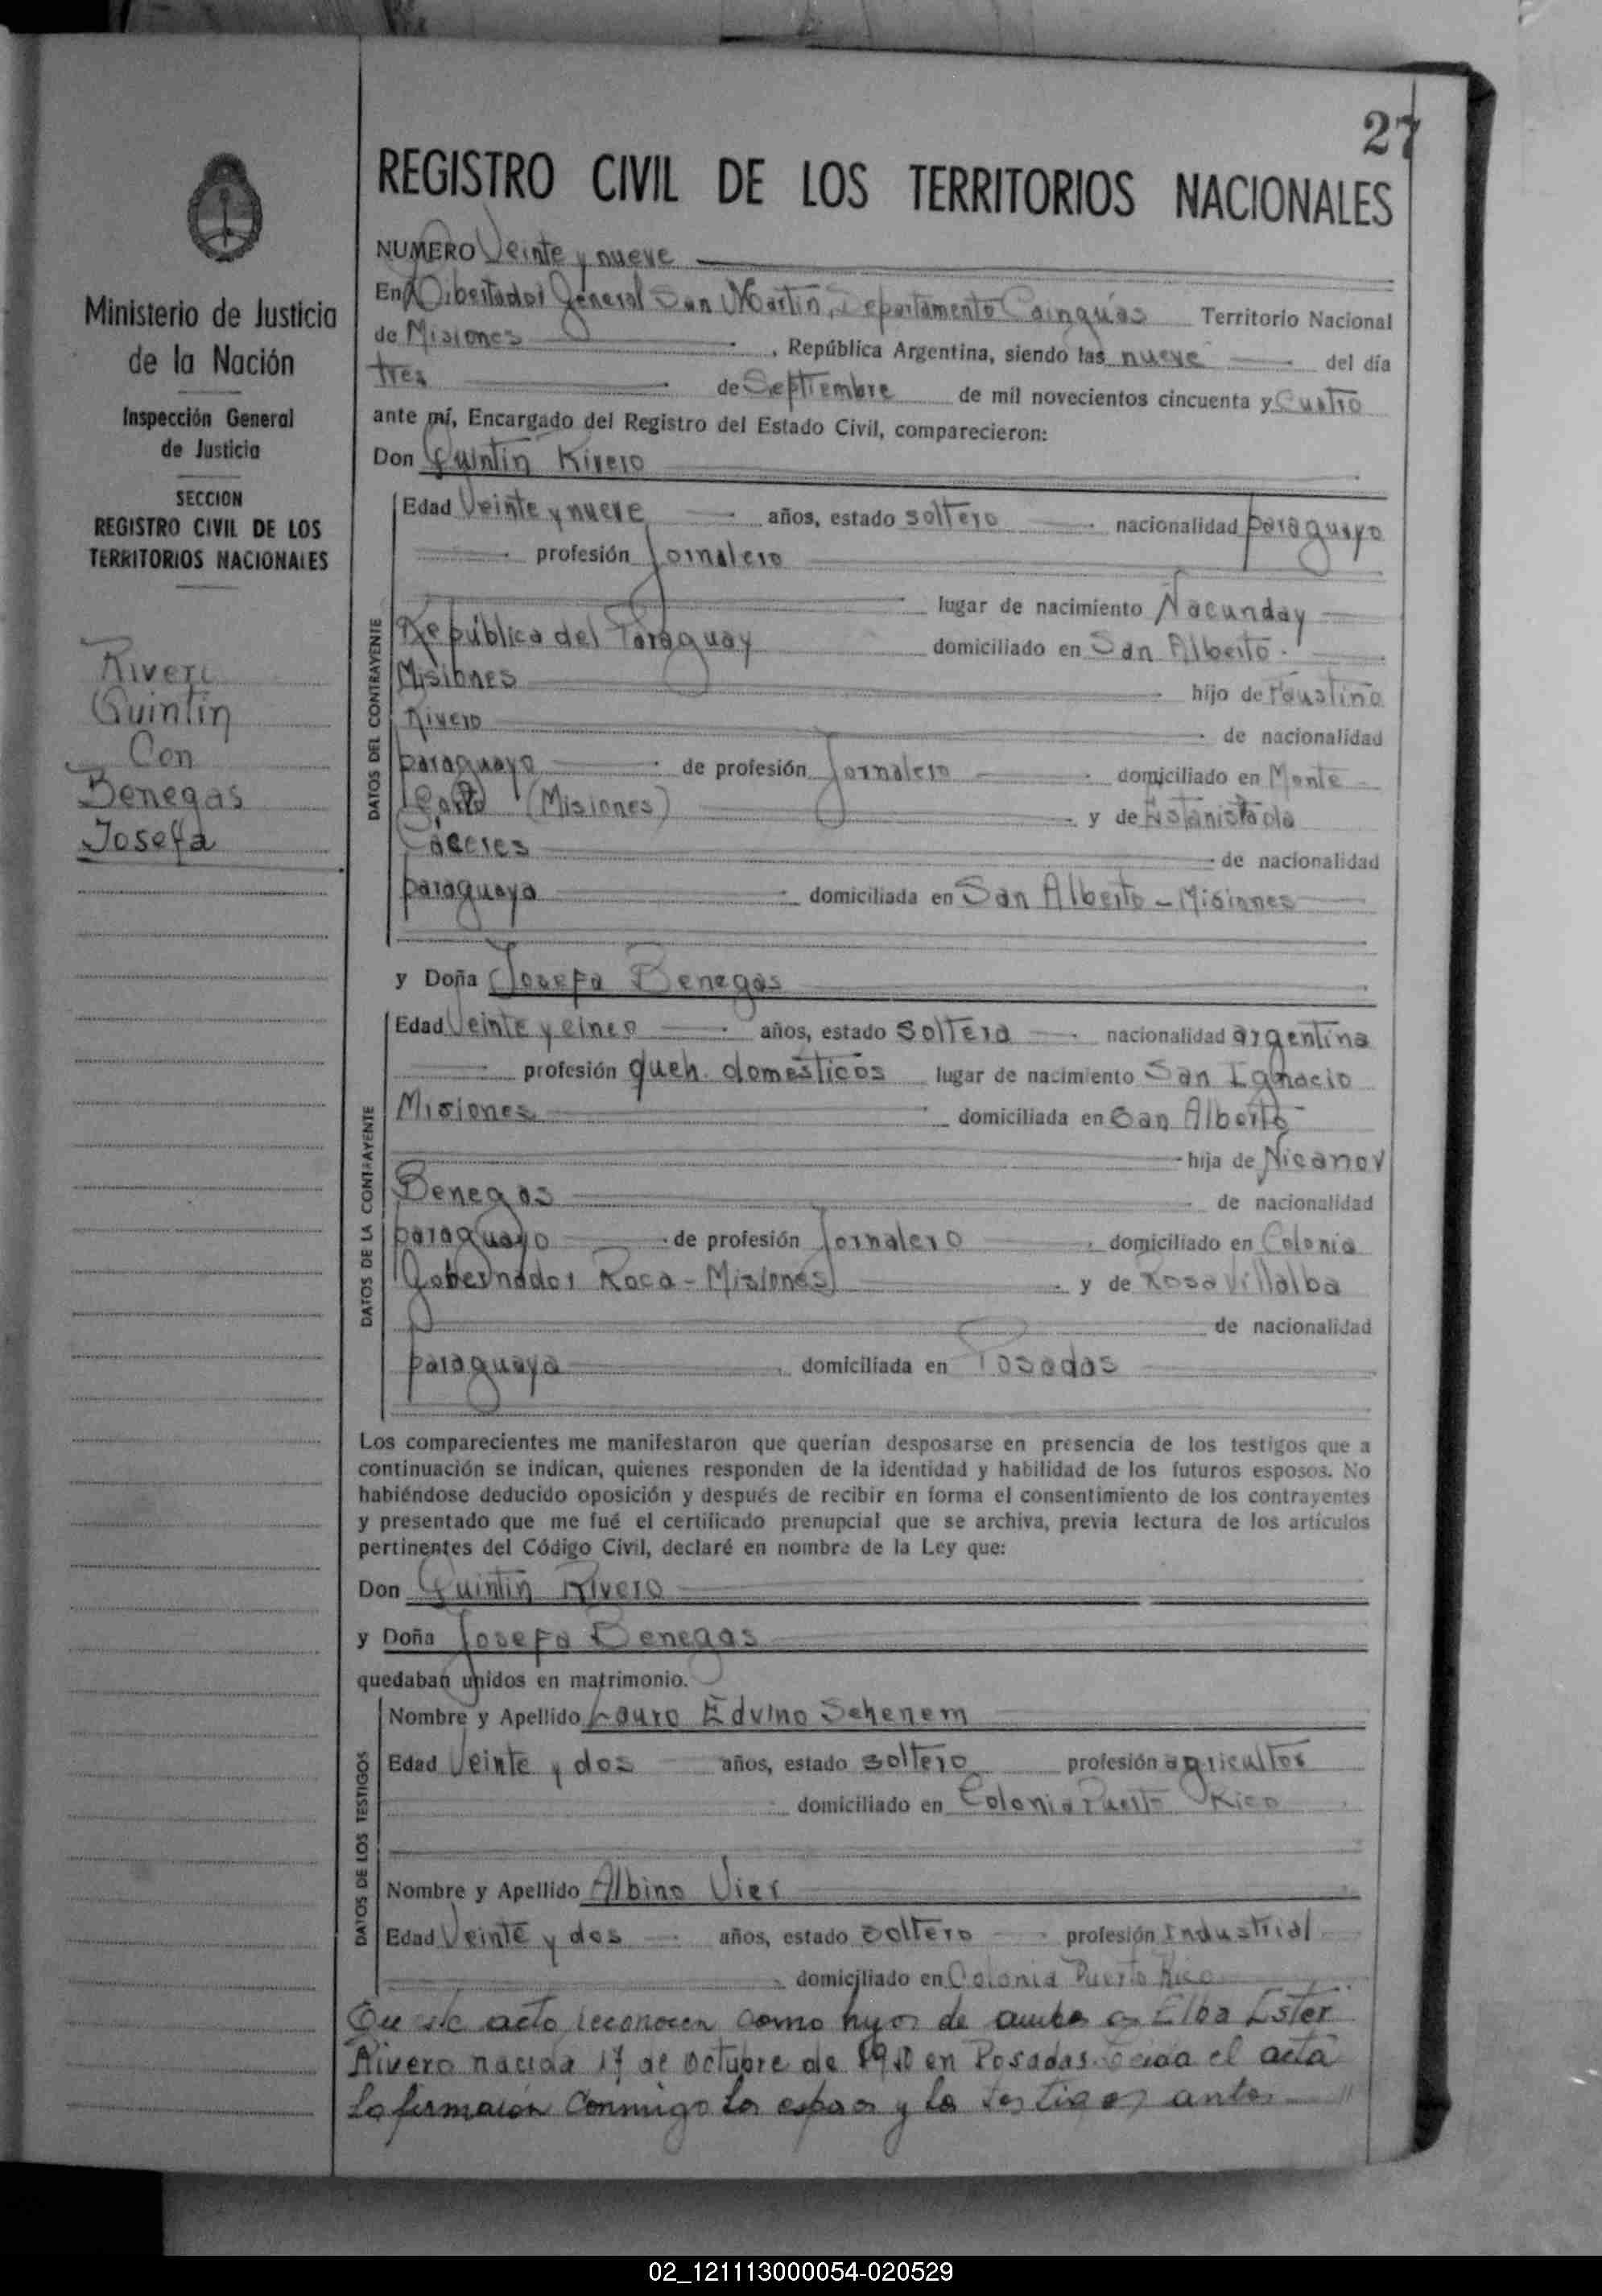 27
REGISTRO CIVIL DE LOS TERRITORIOS NACIONALES
Ministerio de Justicia
de la Nación
Inspección General
de Justicia
SECCION
REGISTRO CIVIL DE LOS
TERRITORIOS NACIONALES
Rivero
Quintin
Con
Benegas
Josefa
NUMERO Veinte y nueve
En Libertador General San Martin, Departamento Cainguás Territorio Nacional
de Misiones , República Argentina, siendo las nueve del día
tres de Septiembre de mil novecientos cincuenta y Cuatro
ante mí, Encargado del Registro del Estado Civil, comparecieron:
Don Quintin Rivero
DATOS DEL CONTRAYENTE
Edad Veinte y nueve años, estado soltero nacionalidad paraguayo
profesión Jornalero
lugar de nacimiento Ñacunday
República del Paraguay domiciliado en San Alberto
Misiones hijo de Faustino
Rivero de nacionalidad
paraguayo de profesión Jornalero domiciliado en Monte
(Misiones) y de
Cáceres de nacionalidad
paraguaya domiciliada en San Alberto - Misiones
y Doña Josefa Benegas
DATOS DE LA CONTRAYENTE
Edad Veinte y cinco años, estado soltera nacionalidad argentina
profesión queh. domésticos lugar de nacimiento San Ignacio
Misiones domiciliada en San Alberto
hija de Nicanor
Benegas de nacionalidad
paraguayo de profesión Jornalero domiciliado en Colonia
Gobernador Roca - Misiones y de Rosa Villalba
de nacionalidad
paraguaya domiciliada en Posadas
Los comparecientes me manifestaron que querían desposarse en presencia de los testigos que a
continuación se indican, quienes responden de la identidad y habilidad de los futuros esposos. No
habiéndose deducido oposición y después de recibir en forma el consentimiento de los contrayentes
y presentado que me fué el certificado prenupcial que se archiva, previa lectura de los artículos
pertinentes del Código Civil, declaré en nombre de la Ley que:
Don Quintin Rivero
y Doña Josefa Benegas
quedaban unidos en matrimonio.
DATOS DE LOS TESTIGOS
Nombre y Apellido Lauro Edvino Schenem
Edad Veinte y dos años, estado soltero profesión agricultor
domiciliado en Colonia Puerto Rico
Nombre y Apellido Albino Vier
Edad Veinte y dos años, estado soltero profesión Industrial
domiciliado en Colonia Puerto Rico
acto reconocen como hijos de ambos a Elba Ester
Rivero nacida 17 de Octubre de en Posadas. Leida el acta
la firmaron conmigo los esposos y los testigos antes
02_121113000054-020529